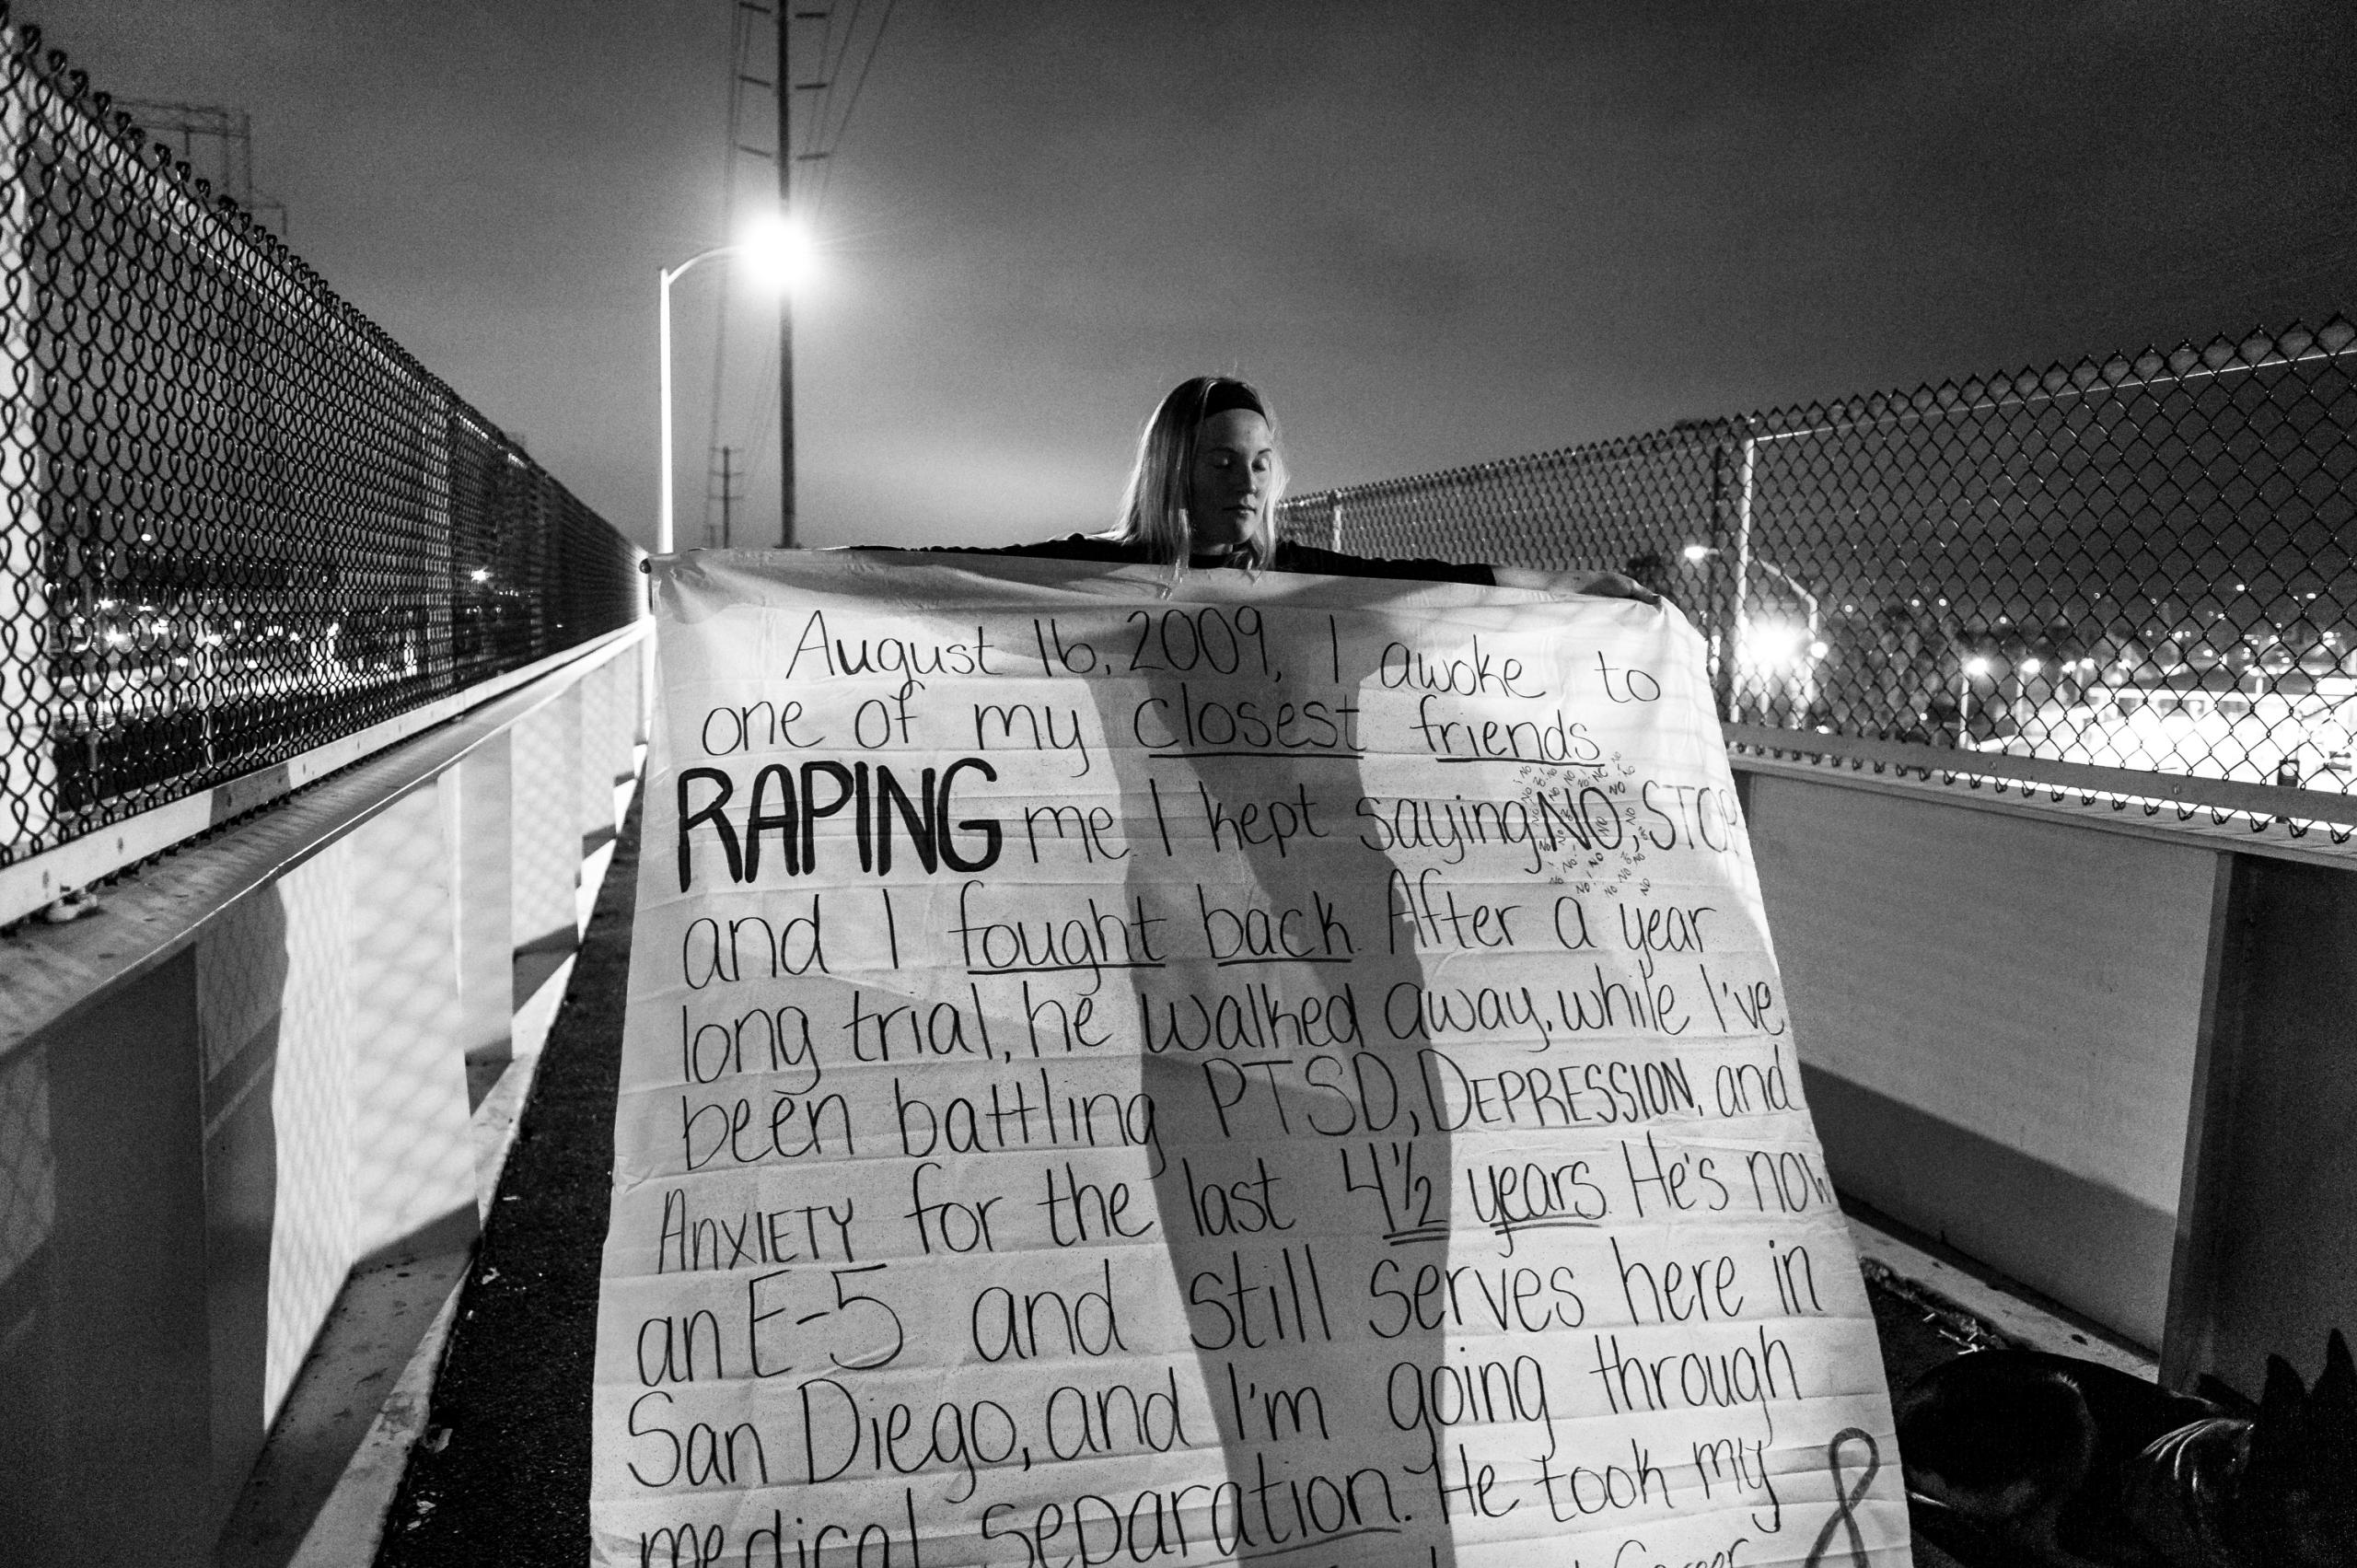 August 16, 2009, I awoke to
one of my closest friends
RAPING me. I kept saying NO, STOP
and I fought back. After a year
long trial, he walked away, while I've
been battling PTSD, DEPRESSION, and
ANXIETY for the last 4½ years. He's now
an E-5 and still serves here in
San Diego, and I'm going through
medical separation. He took my
Career